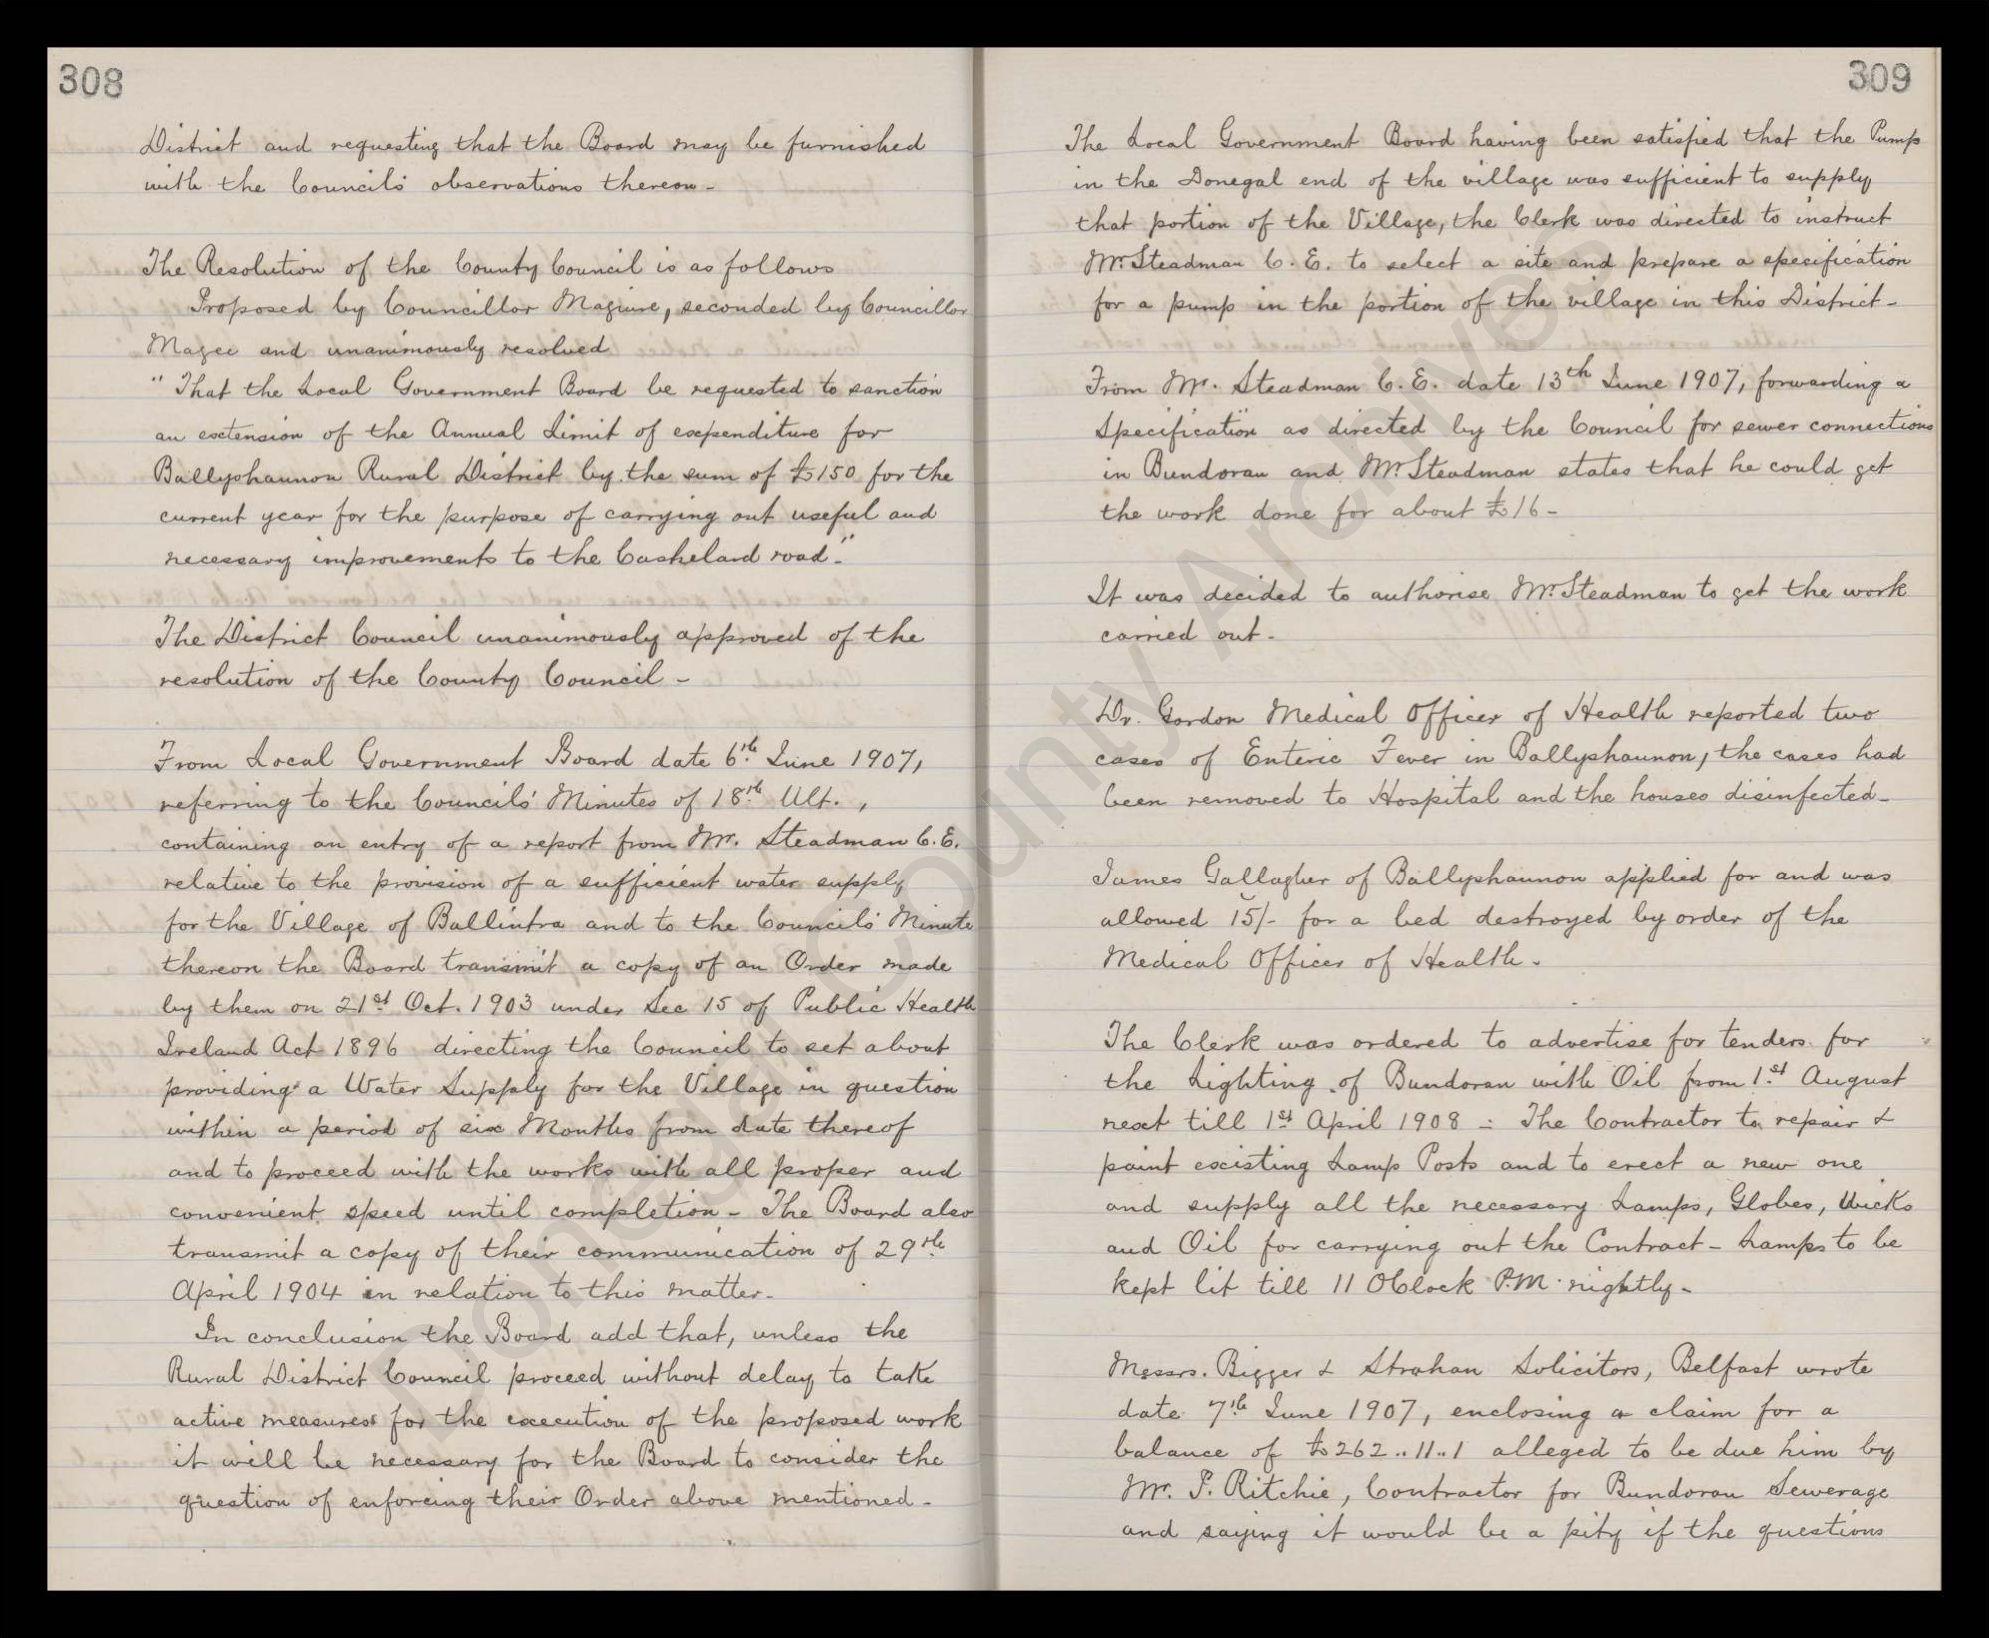 308
District and requesting that the Board may be furnished
with the Councils' observations thereon -
The Resolution of the County Council is as follows
Proposed by Councillor Maguire, seconded by Councillor
Magee and unanimously resolved
" That the Local Government Board be requested to sanction
an extension of the Annual Limit of expenditure for
Ballyshannon Rural District by the sum of £150 for the
current year for the purpose of carrying out useful and
necessary improvements to the Cashelard road".
The District Council unanimously approved of the
resolution of the County Council -
From Local Government Board date 6th June 1907,
referring to the Councils' Minutes of 18th Ult.,
containing an entry of a report from Mr. Steadman C.E.
relative to the provision of a sufficient water supply
for the Village of Ballintra and to the Councils' Minute
thereon the Board transmit a copy of an Order made
by them on 21st Oct. 1903 under Sec 15 of Public Health
Ireland Act 1896 directing the Council to set about
providing a Water Supply for the Village in question
within a period of six Months from date thereof
and to proceed with the works with all proper and
convenient speed until completion - The Board also
transmit a copy of their communication of 29th
April 1904 in relation to this matter -
In conclusion the Board add that, unless the
Rural District Council proceed without delay to take
active measures for the execution of the proposed work
it will be necessary for the Board to consider the
question of enforcing their Order above mentioned -
309
The Local Government Board having been satisfied that the Pump
in the Donegal end of the village was sufficient to supply
that portion of the Village, the Clerk was directed to instruct
Mr. Steadman C.E. to select a site and prepare a specification
for a pump in the portion of the village in this District -
From Mr. Steadman C.E. date 13th June 1907, forwarding a
Specification as directed by the Council for sewer connections
in Bundoran and Mr. Steadman states that he could get
the work done for about £16 -
It was decided to authorise Mr. Steadman to get the work
carried out -
Dr. Gordon Medical Officer of Health reported two
cases of Enteric Fever in Ballyshannon, the cases had
been removed to Hospital and the houses disinfected -
James Gallagher of Ballyshannon applied for and was
allowed 15/- for a bed destroyed by order of the
Medical Officer of Health -
The Clerk was ordered to advertise for tenders for
the Lighting of Bundoran with Oil from 1st August
next till 1st April 1908 - : The Contractor to repair &
paint existing Lamp Posts and to erect a new one
and supply all the necessary Lamps, Globes, Wicks
and Oil for carrying out the Contract - Lamps to be
kept lit till 11 OClock P.M. nightly -
Messrs. Bigger & Strahan Solicitors, Belfast wrote
date 7th June 1907, enclosing a claim for a
balance of £262..11..1 alleged to be due him by
Mr. P. Ritchie, Contractor for Bundoran Sewerage
and saying it would be a pity if the questions
Donegal County Archives